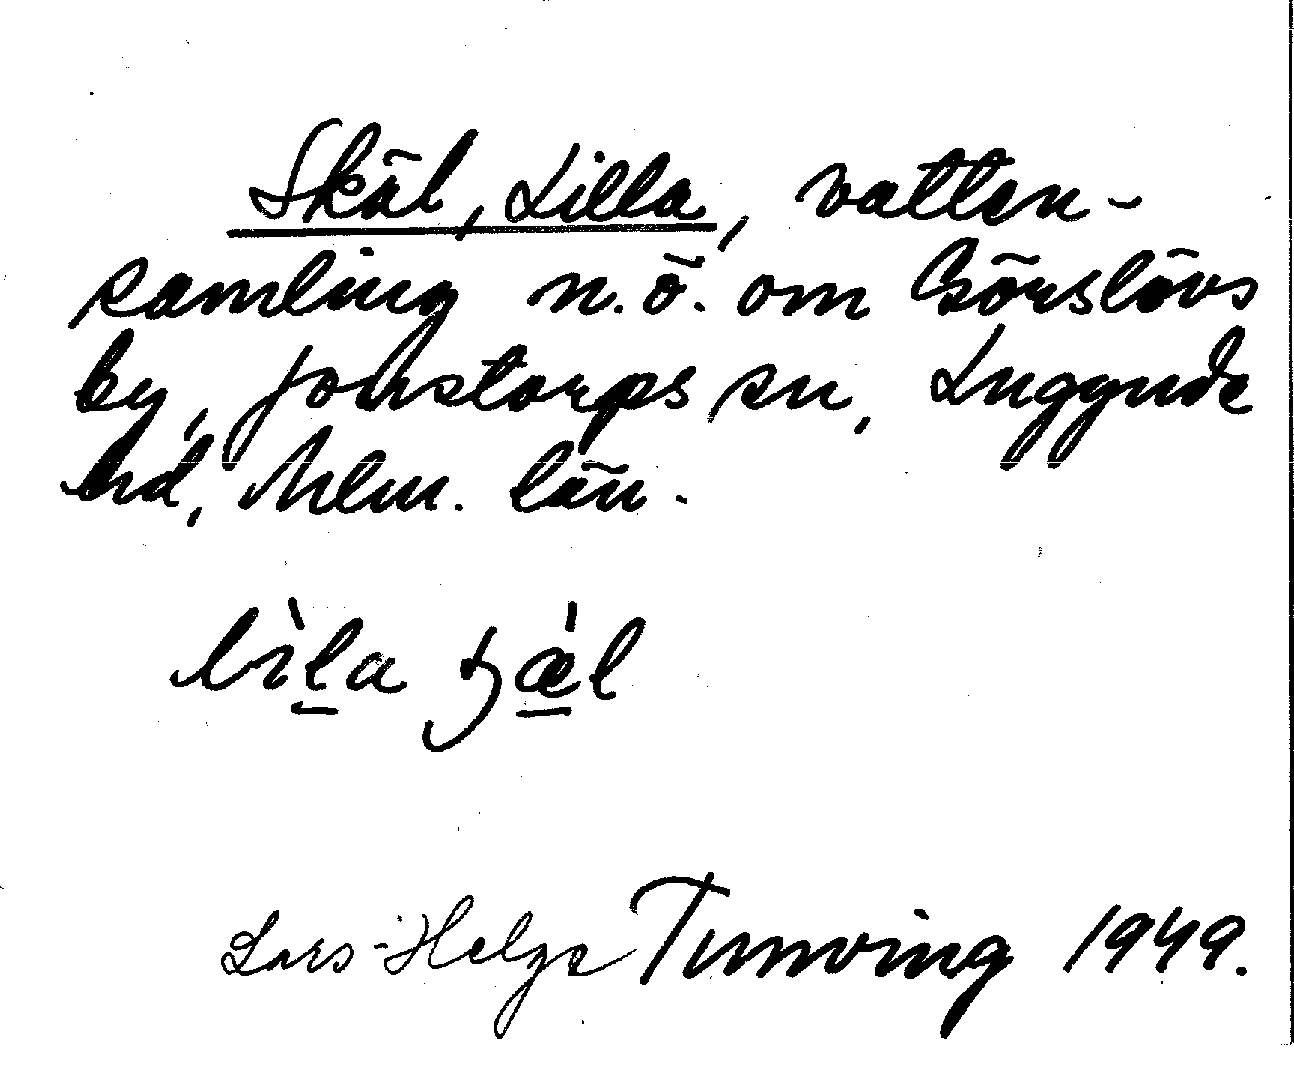 Skäl, Lilla, vatten-
samling n.ö. om Görslövs
by, Jonstorps sn, Luggude
hd, Mlm. län.
lìl̠a ʂæ̠̍l
Lars-Helge Tunving 1949.